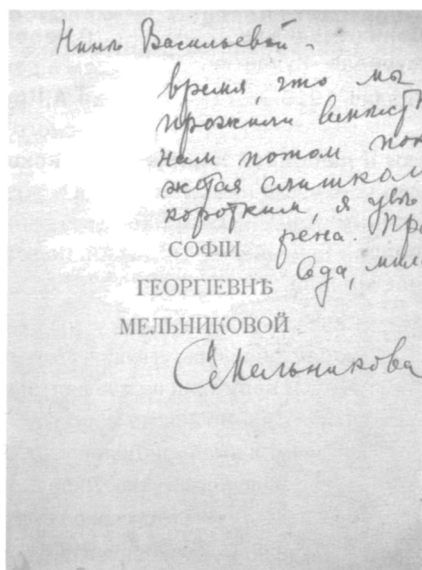 Нинѣ Васильевой -
время, что мы
прожили вмѣст
нам потом пок
жется слишком
коротким, я увѣ
рена. Пра
вда, мил
СОФІИ
ГЕОРГІЕВНѢ
МЕЛЬНИКОВОЙ
Мельникова